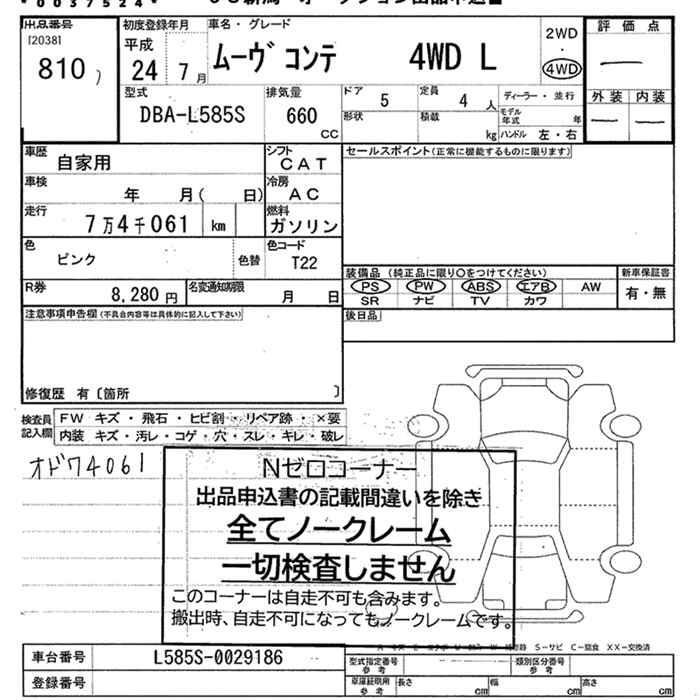 *0037524*
出品番号 初度登録年月 車名・グレード 評価点
[20381
810 平成 24 7月 ムーヴ コンテ 4WD L 2WD・4WD
型式 排気量 ドア 5 定員 4人 ディーラー・並行 外装 内装
DBA-L585S 660 cc 形状 積載 kg モデル年式 年 ハンドル 左・右
車歴 自家用 シフト CAT セールスポイント(正常に機能するものに限ります)
車検 年 月( 日) 冷房 AC
走行 7万4千061 km 燃料 ガソリン
色 ピンク 色替 色コード T22
装備品(純正品に限り○をつけてください) 新車保証書
R券 8,280円 名変通知期限 月 日 PS PW ABS エアB AW 有・無
SR ナビ TV カワ
注意事項申告欄(不具合内容等は具体的に記入して下さい) 後日品
修復歴 有〔箇所 〕
検査員記入欄 FW キズ・飛石・ヒビ割・リペア跡・×要
内装 キズ・汚レ・コゲ・穴・スレ・キレ・破レ
オドワ4061
Nゼロコーナー
出品申込書の記載間違いを除き
全てノークレーム
一切検査しません
このコーナーは自走不可も含みます。
搬出時、自走不可になってもノークレームです。
S-サビ C-腐食 XX-交換済
車台番号 L585S-0029186 型式指定番号 参考 類別区分番号 参考
登録番号 車庫証明用 参考 長さ cm 幅 cm 高さ cm